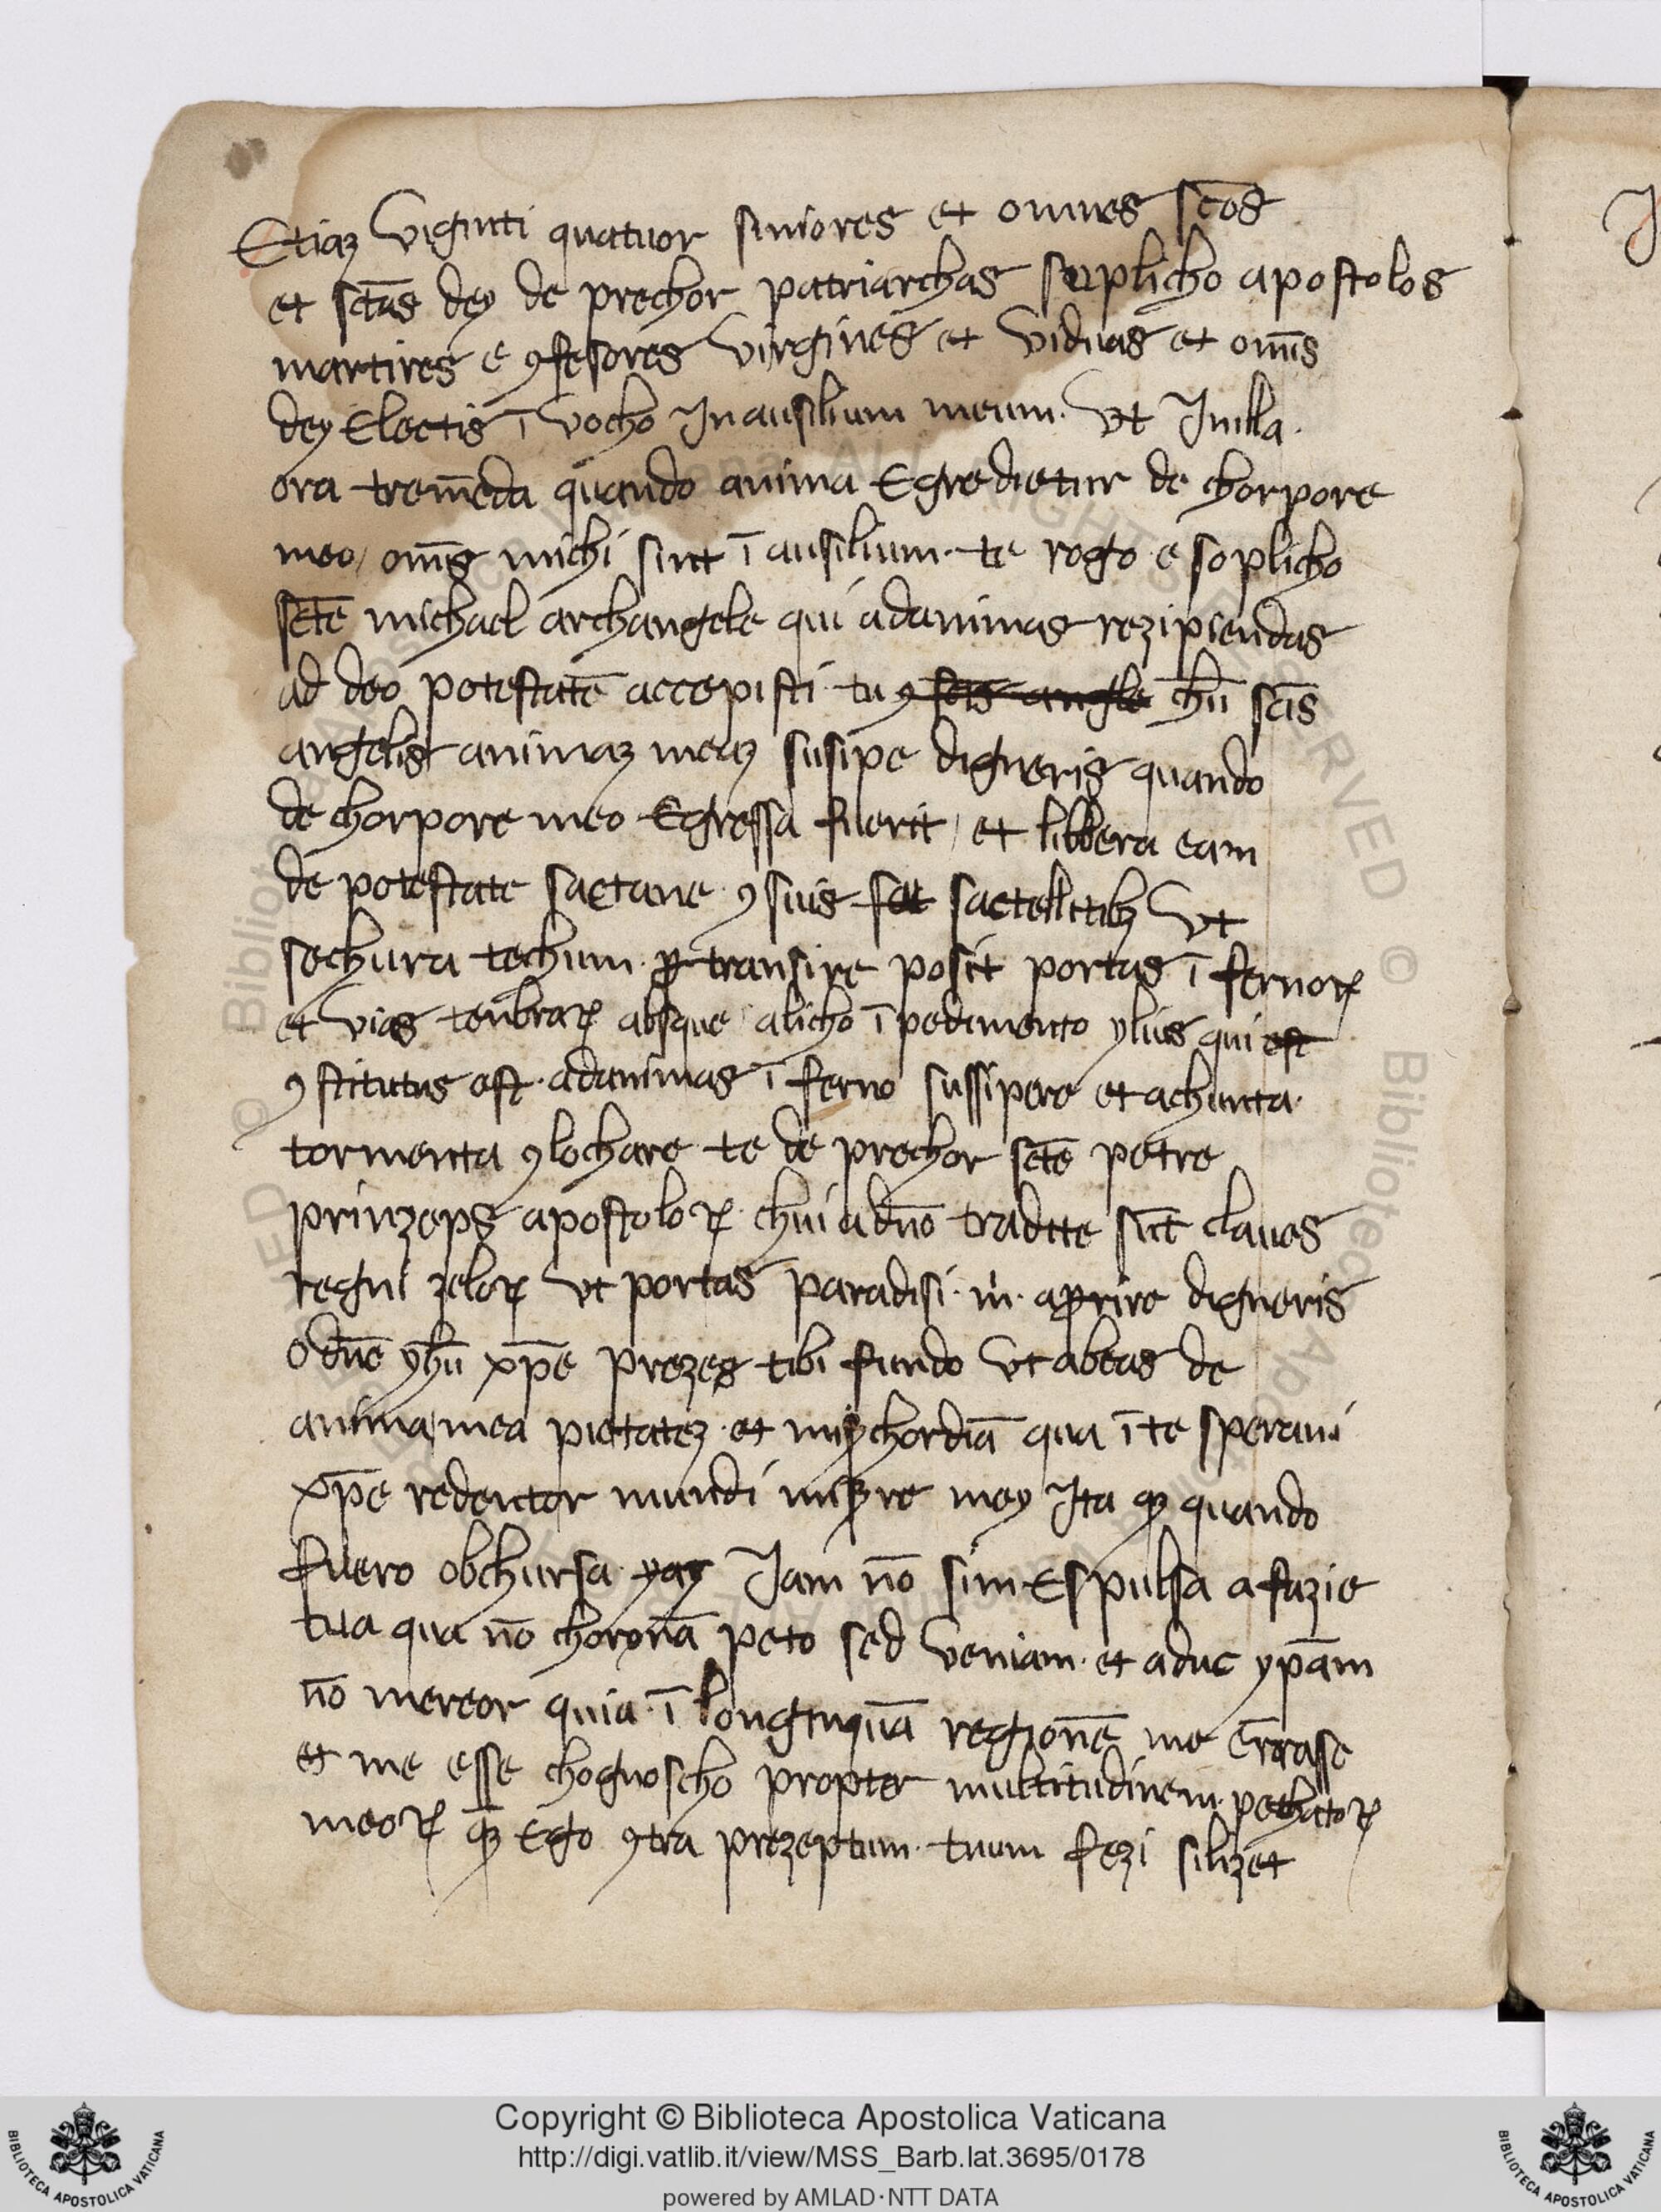 Etiaꝫ viginti quatuor siniores et omnes scōs
et sctās dey de prechor patriarchas suplicho apostolos
martires e ꝯfesores virgines et viduas et om̄s
dey Electis ī vocho In ausilium meum· vt Inilla·
ora trem̄eda quando anima Egredietur de chorpore
meo / om̄s michi sint ī ausilium· te rogo e soplicho
sctē michael archangele qui adanimas rezipiendas
ad deo potestatē accepisti· tu ꝯ scts angle chū scīs
angelis animaꝫ meaꝫ susipe digneris quando
de chorpore meo Egressa fuerit / et libbera eam
de potestate sactane· ꝯ suis sat sactellitibꝫ vt
sechura techum· ꝑ transire posit portas ī fernoꝝ
et vias tenbraꝝ absque alicho ī pedimento yluis qui est
ꝯ stitutus est· adanimas ī ferno sussipere et achunta·
tormenta ꝯlochare· te de prechor sctē petre
prinzeps apostoloꝝ· chui adn̄o tradite sūt claues
regni zeloꝝ vt portas paradisi· m̄· aprire digneris
o dn̄e yhū xp̄e prezes tibi fundo vt abeas de
anima mea pietateꝫ· et miꝫchordiā qua ī te speraui
xp̄e redentor mundi miꝫre mey Ita ꝙ quando
fuero obchursa· yay Iam nō sim Espulsa a fazie
tua qua nō choronā peto sed veniam· et aduc yp̄am
nō mereor quia· ī longinquā regionē me ērrase
et me esse chognoscho propter multitudinem· pechatoꝝ
meoꝝ ꝙ Ego ꝯtra prezeptum· tuum fezi silizet
Copyright © Biblioteca Apostolica Vaticana
http://digi.vatlib.it/view/MSS_Barb.lat.3695/0178
powered by AMLAD·NTT DATA
BIBLIOTECA APOSTOLICA VATICANA
BIBLIOTECA APOSTOLICA VATICANA